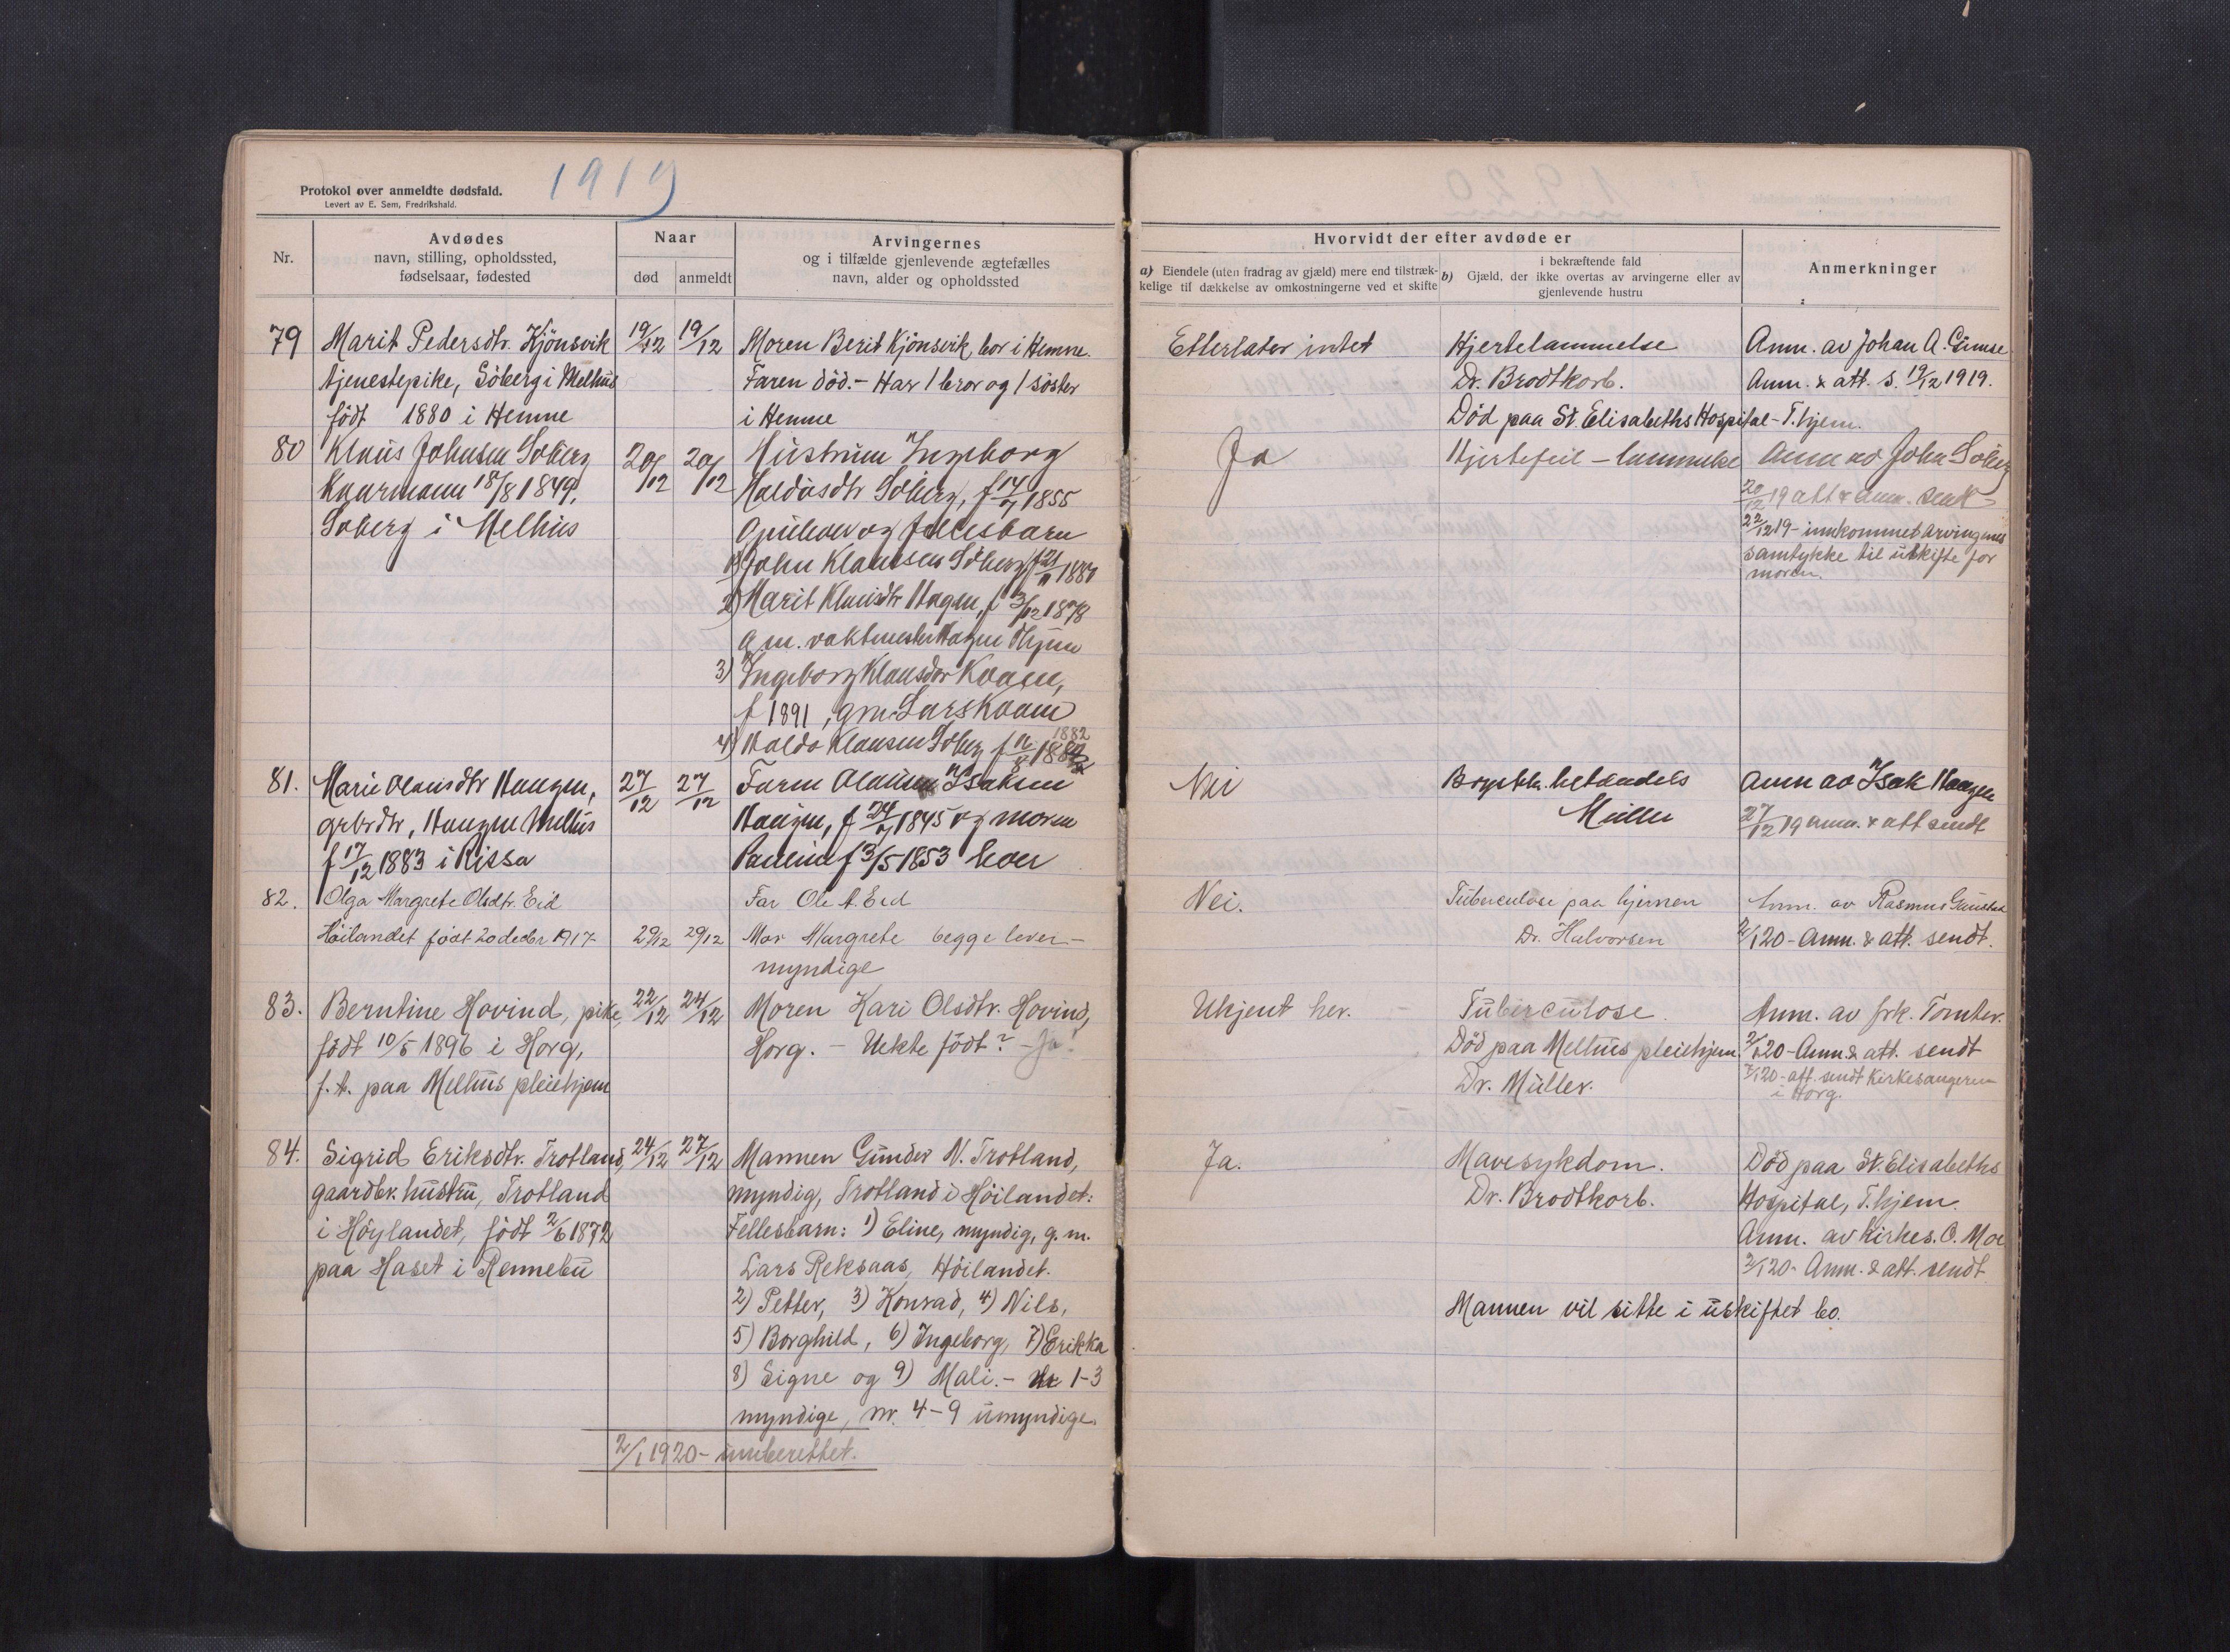 1919
Protokol over anmeldte dødsfald.
Levert av E. Sem, Fredrikshald.
Nr.
Avdødes
navn, stilling, opholdssted,
fødselsaar, fødested
Naar
død
anmeldt
Arvingernes
og i tilfælde gjenlevende ægtefælles
navn, alder og opholdssted
Hvorvidt der efter avdøde er
a) Eiendele (uten fradrag av gjæld) mere end tilstræk-
kelige til dækkelse av omkostningerne ved et skifte
i bekræftende fald
b) Gjæld, der ikke overtas av arvingerne eller av
gjenlevende hustru
Anmerkninger
79
Marit Pedersdtr. Kjönsvik
tjenestepike, Söberg i Melhus
født 1880 i Hemne
19/12
19/12
Moren Berit Kjönsvik, bor i Hemne.
Faren död. - Har 1 bror og 1 söster
i Hemne
Efterlater intet
Hjertelammelse
Dr. Brodtkorb.
Död paa St. Elisabeths Hospital - T.hjem.
Anm. av Johan A. Gimse
Anm. & att. s. 19/12 1919.
80
Klaus Johnsen Söberg
Kaarmann 18/8 1849,
Söberg i Melhus
20/12
20/12
Hustruen Ingeborg
Haldosdtr Söberg, f 14/7 1855
og fellesbarn
1) John Klausen Söberg f 21/11 1880
2) Marit Klausdtr Haagen, f 3/12 1878
g m. vaktmester Haagen Thjem
3) Ingeborg Klausdtr Kvaen,
f 1891, gm. Lars Kvaen
4) Haldo Klausen Söberg
1882
Ja
Hjertefeil - lammelse
Anm av John Söberg
20/12 19 att & anm. sendt
22/12 19 - innkommet arvingenes
samtykke til uskifte for
moren.
81.
Marie Olausdtr Haugen,
grbrdtr, Haugen Melhus
f 17/12 1883 i Rissa
27/12
27/12
Faren Olaus Isaksen
Haugen, f 24/7 1845 og moren
Pauline f 3/5 1853 lever
Nei
Müller
Anm av Isak Haugen
27/12 19 anm. & att sendt
82.
Olga Margrete Olsdtr. Eid
Höilandet født 20 decbr 1917
29/12
29/12
Far Ole A. Eid
Mor Margrete begge lever -
myndige
Nei.
Tuberculose paa hjernen
Dr. Halvorsen
Anm. av Rasmus Gaustad
2/1 20 - Anm. & att. sendt.
83.
Berntine Hovind, pike,
født 10/5 1896 i Horg,
f. t. paa Melhus pleiehjem
22/12
24/12
Moren Kari Olsdtr. Hovind,
Horg. - Uekte født? - Ja!
Ukjent her.
Tuberculose.
Död paa Melhus pleiehjem.
Dr. Müller.
Anm. av frk. Tomter.
2/1 20 - Anm. & att. sendt
7/1 20 - att. sendt Kirkesangeren
i Horg.
84.
Sigrid Eriksdtr. Trotland,
gaardbr. hustru, Trotland
i Höylandet, født 2/6 1872
paa Haset i Rennebu
24/12
27/12
Mannen Gunder N. Trotland,
myndig, Trotland i Höilandet:
Fellesbarn: 1) Eline, myndig, g. m.
Lars Reksaas, Höilandet.
2) Petter, 3) Konrad, 4) Nils,
5) Borghild, 6) Ingeborg, 7) Erikka
8) Signe og 9) Mali. - Nr 1-3
myndige, nr. 4-9 umyndige.
Ja.
Mavesykdom.
Dr. Brodtkorb.
Död paa St. Elisabeths
Hospital, T.hjem.
Anm. av Kirkes. O. Moe
2/1 20 - Anm. & att. sendt
Mannen vil sitte i uskiftet bo.
2/1 1920 - innberettet.